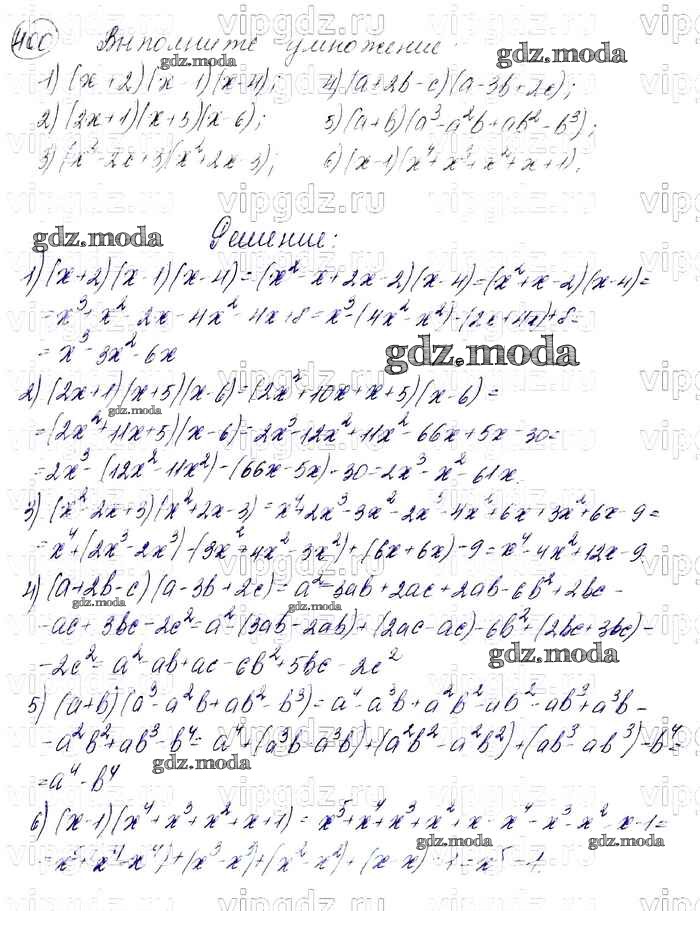 400 Выполните умножение.
1) (x+2)(x-1)(x-4); 4) (a+2b-c)(a-3b+2c);
2) (2x+1)(x+5)(x-6); 5) (a+b)(a³-a²b+ab²-b³);
3) (x²-2x+3)(x²+2x-3); 6) (x-1)(x⁴+x³+x²+x+1).
gdz.moda
Решение:
1) (x+2)(x-1)(x-4)=(x²-x+2x-2)(x-4)=(x²+x-2)(x-4)=
=x³+x²-2x-4x²-4x+8=x³-(4x²-x²)-(2x+4x)+8=
=x³-3x²-6x
gdz.moda
2) (2x+1)(x+5)(x-6)=(2x²+10x+x+5)(x-6)=
=(2x²+11x+5)(x-6)=2x³-12x²+11x²-66x+5x-30=
=2x³-(12x²-11x²)-(66x-5x)-30=2x³-x²-61x.
3) (x²-2x+3)(x²+2x-3)=x⁴+2x³-3x²-2x³-4x²+6x+3x²+6x-9=
=x⁴+(2x³-2x³)-(3x²+4x²-3x²)+(6x+6x)-9=x⁴-4x²+12x-9.
4) (a+2b-c)(a-3b+2c)=a²-3ab+2ac+2ab-6b²+2bc-
-ac+3bc-2c²=a²-(3ab-2ab)+(2ac-ac)-6b²+(2bc+3bc)-
-2c²=a²-ab+ac-6b²+5bc-2c²
gdz.moda
5) (a+b)(a³-a²b+ab²-b³)=a⁴-a³b+a²b²-ab²-ab³+a³b-
-a²b²+ab³-b⁴=a⁴+(a³b-a³b)+(a²b²-a²b²)+(ab³-ab³)-b⁴=
=a⁴-b⁴
gdz.moda
6) (x-1)(x⁴+x³+x²+x+1)=x⁵+x⁴+x³+x²+x-x⁴-x³-x²-x-1=
=x⁵+x⁴-x⁴)+(x³-x³)+(x²-x²)+(x-x)-1=x⁵-1.